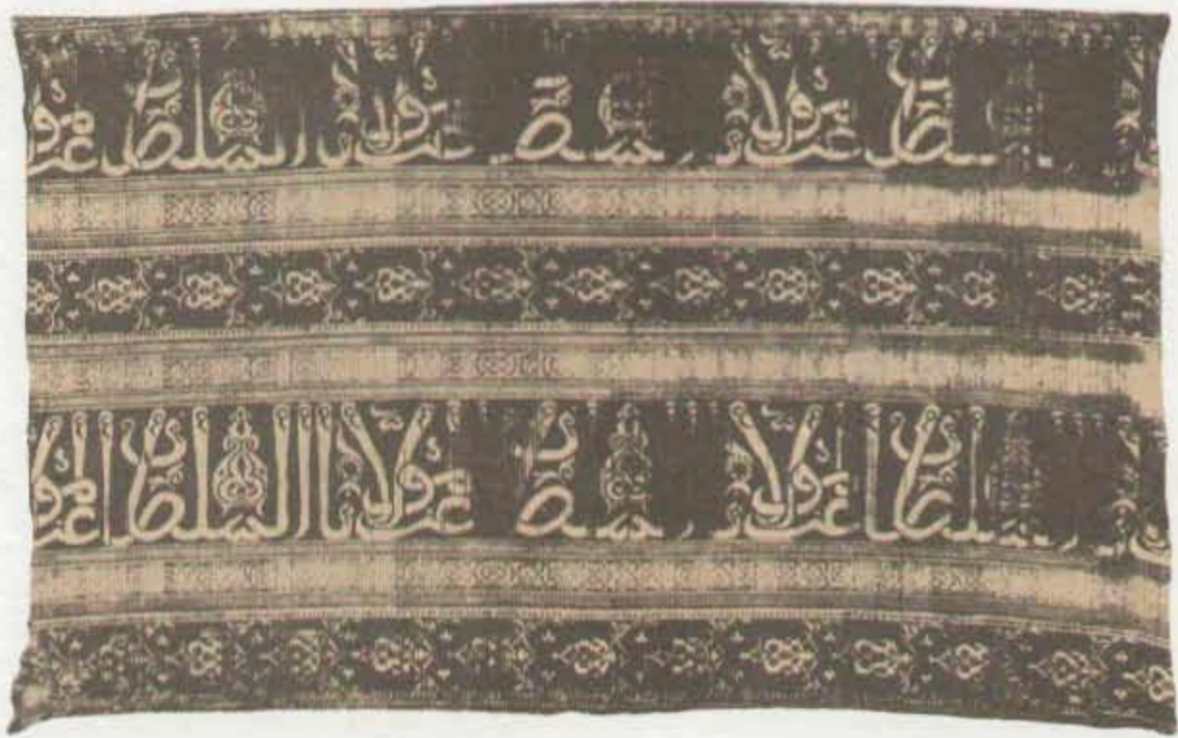 السلطان عز لمولانا السلطان عز لمولانا السلطان عز
السلطان عز لمولانا السلطان عز لمولانا السلطان عز